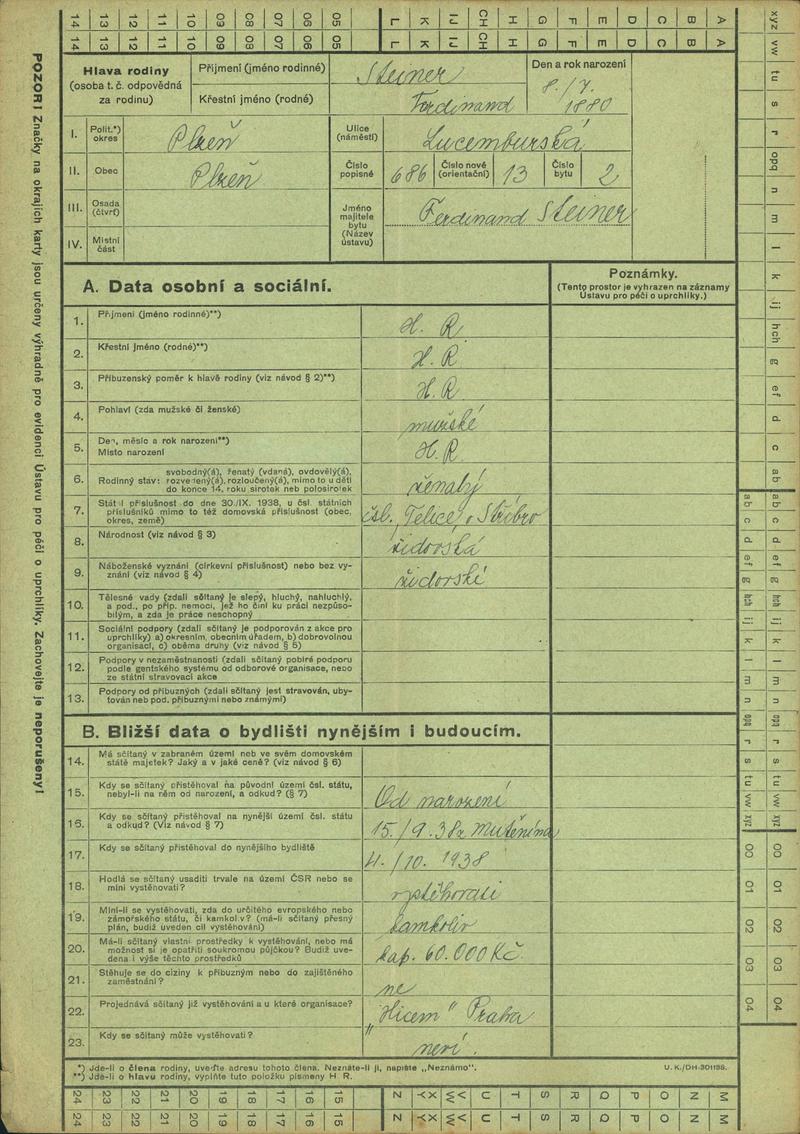 14 13 12 11 10 09 08 07 06 05 L K IJ CH H G F E D C B A
14 13 12 11 10 09 08 07 06 05 L K IJ CH H G F E D C B A
POZOR! Značky na okrajích karty jsou určeny výhradně pro evidenci Ústavu pro péči o uprchlíky. Zachovejte je neporušeny!
Hlava rodiny
(osoba t. č. odpovědná
za rodinu)
Příjmení (jméno rodinné) Steiner
Křestní jméno (rodné) Ferdinand
Den a rok narození
8./7.
1880
I. Polit.*) okres Plzeň
Ulice (náměstí) Lucemburská
II. Obec Plzeň
Číslo popisné 686 Číslo nové (orientační) 13 Číslo bytu 2
III. Osada (čtvrť)
Jméno majitele bytu (Název ústavu) Ferdinand Steiner
IV. Místní část
A. Data osobní a sociální.
Poznámky.
(Tento prostor je vyhrazen na záznamy
Ústavu pro péči o uprchlíky.)
1. Příjmení (jméno rodinné)**) H. R
2. Křestní jméno (rodné)**) H. R
3. Příbuzenský poměr k hlavě rodiny (viz návod § 2)**) H. R
4. Pohlaví (zda mužské či ženské) mužské
5. Den, měsíc a rok narození**)
Místo narození H. R
6. Rodinný stav: svobodný(á), ženatý (vdaná), ovdovělý(á),
rozvedený(á), rozloučený(á), mimo to u dětí
do konce 14. roku sirotek neb polosirotek ženatý
7. Státní příslušnost do dne 30./IX. 1938, u čsl. státních
příslušníků mimo to též domovská příslušnost (obec,
okres, země) čsl., Telice, o Stříbro
8. Národnost (viz návod § 3) židovská
9. Náboženské vyznání (církevní příslušnost) nebo bez vy-
znání (viz návod § 4) židovské
10. Tělesné vady (zdali sčítaný je slepý, hluchý, nahluchlý,
a pod., po příp. nemoci, jež ho činí ku práci nezpůso-
bilým, a zda je práce neschopný
11. Sociální podpory (zdali sčítaný je podporován z akce pro
uprchlíky) a) okresním, obecním úřadem, b) dobrovolnou
organisací, c) oběma druhy (viz návod § 5)
12. Podpory v nezaměstnanosti (zdali sčítaný pobírá podporu
podle gentského systému od odborové organisace, nebo
ze státní stravovací akce
13. Podpory od příbuzných (zdali sčítaný jest stravován, uby-
tován neb pod. příbuznými nebo známými)
B. Bližší data o bydlišti nynějším i budoucím.
14. Má sčítaný v zabraném území neb ve svém domovském
státě majetek? Jaký a v jaké ceně? (viz návod § 6)
15. Kdy se sčítaný přistěhoval na původní území čsl. státu,
nebyl-li na něm od narození, a odkud? (§ 7) Od narození
16. Kdy se sčítaný přistěhoval na nynější území čsl. státu
a odkud? (Viz návod § 7) 15./9. 38 z Mutěnína
17. Kdy se sčítaný přistěhoval do nynějšího bydliště 4./10. 1938
18. Hodlá se sčítaný usaditi trvale na území ČSR nebo se
míní vystěhovati? vystěhovati
19. Míní-li se vystěhovati, zda do určitého evropského nebo
zámořského státu, či kamkoliv? (má-li sčítaný přesný
plán, budiž uveden cíl vystěhování) kamkoliv
20. Má-li sčítaný vlastní prostředky k vystěhování, nebo má
možnost si je opatřiti soukromou půjčkou? Budiž uve-
dena i výše těchto prostředků kap. 60.000 Kč
21. Stěhuje se do ciziny k příbuzným nebo do zajištěného
zaměstnání? ne
22. Projednává sčítaný již vystěhování a u které organisace? "Hicem" Praha
23. Kdy se sčítaný může vystěhovati? neví.
*) Jde-li o člena rodiny, uveďte adresu tohoto člena. Neznáte-li ji, napište „Neznámo".
**) Jde-li o hlavu rodiny, vyplňte tuto položku písmeny H. R.
U. K./DH-301138.
24 23 22 21 20 19 18 17 16 15 Z YX WV U T S R Q P O N M
24 23 22 21 20 19 18 17 16 15 Z YX WV U T S R Q P O N M
xyz vw tu s r opq n m l k ij hch g ef d c ab
ab c d ef g hch ij k l m n opq r s tu vw xyz
00 01 02 03 04